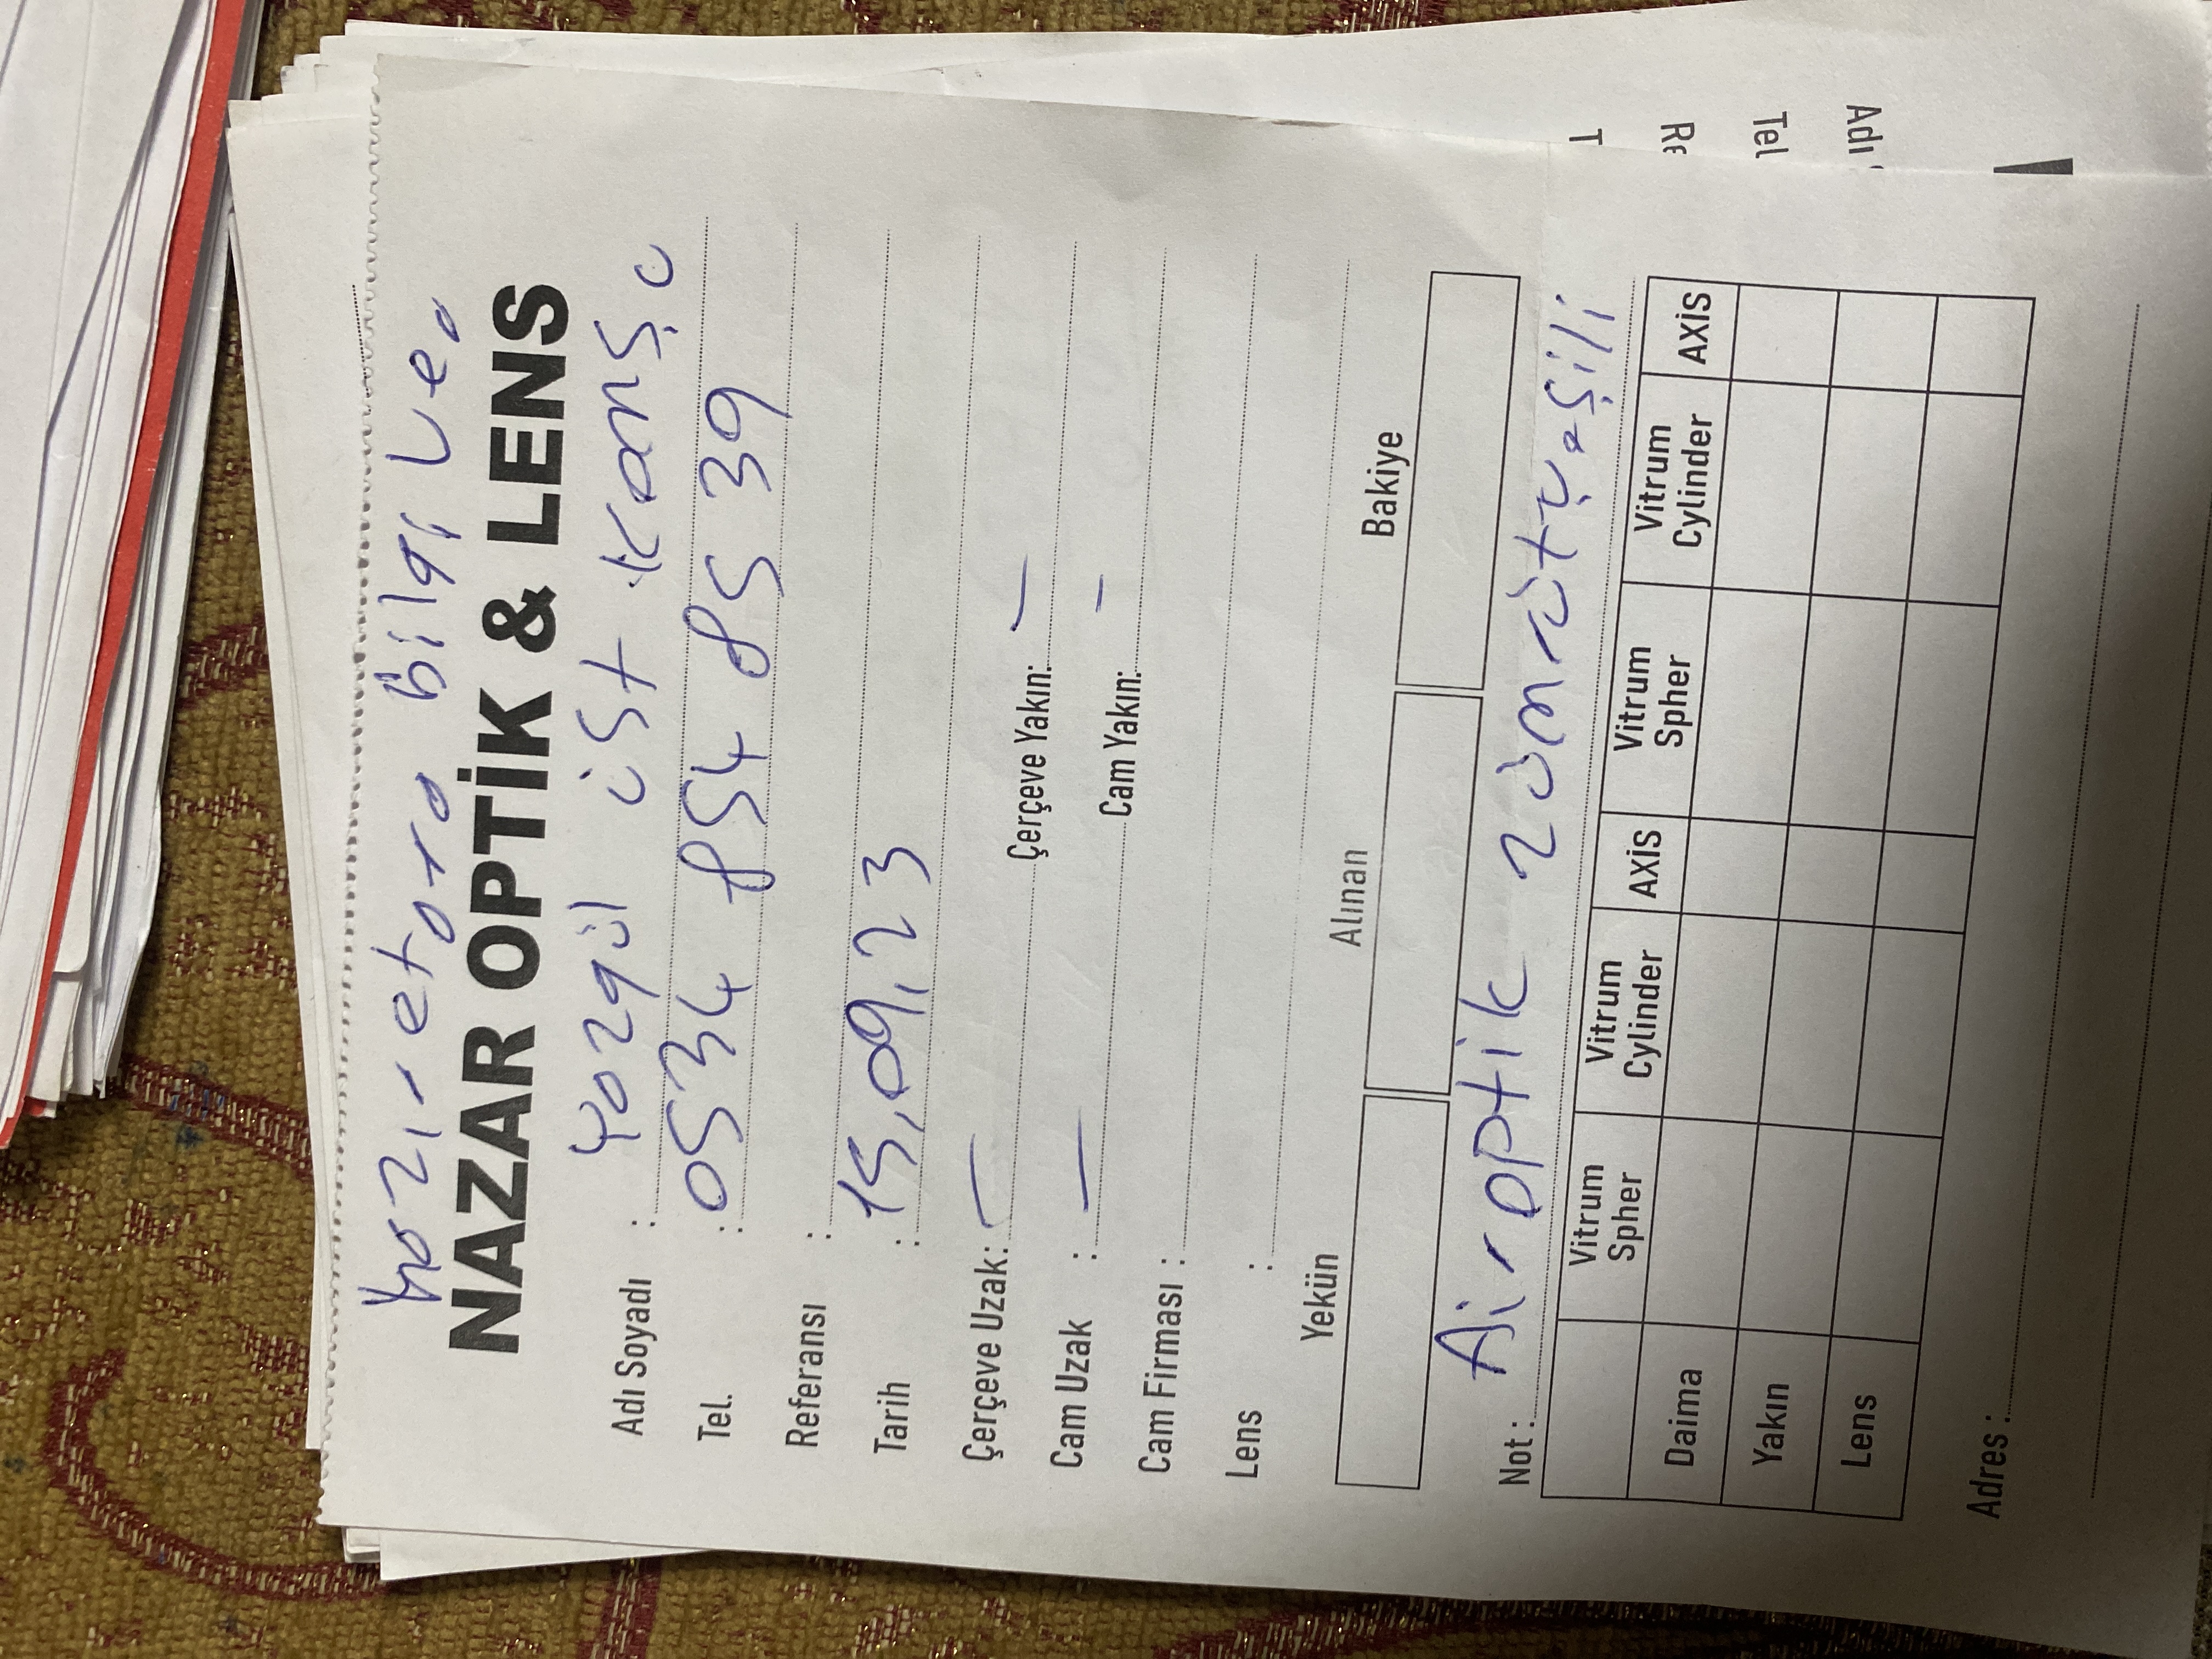 bilgi ver
NAZAR OPTİK & LENS
Adı Soyadı : Yozgül ist karışı
Tel. : 0534 854 85 39
Referansı :
Tarih : 15,09,23
Çerçeve Uzak: — Çerçeve Yakın: —
Cam Uzak : — Cam Yakın: -
Cam Firması :
Lens :
Yekün Alınan Bakiye
Not : Airoptik zümrüt yeşili
Vitrum Spher Vitrum Cylinder AXİS Vitrum Spher Vitrum Cylinder AXİS
Daima
Yakın
Lens
Adres :
T
Re
Tel
Adı